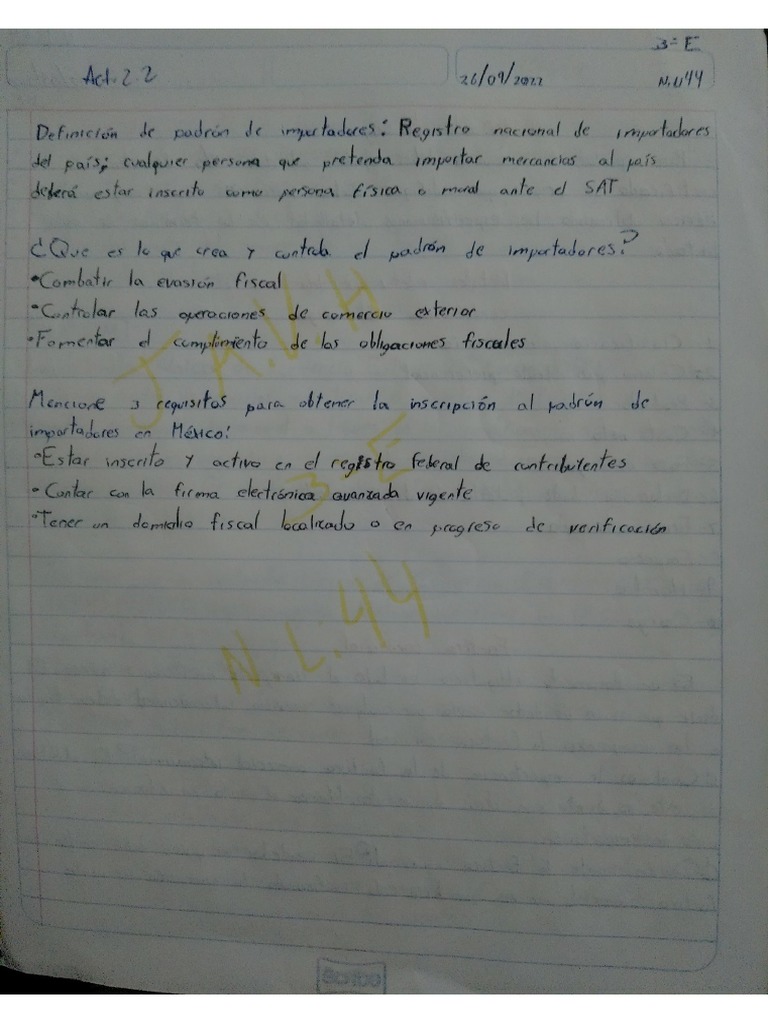 3= E
Act. 2.2
26/09/2022
N.L44
Definición de padrón de importadores: Registro nacional de importadores
del país; cualquier persona que pretenda importar mercancias al país
deberá estar inscrito como persona física o moral ante el SAT
¿Que es lo que crea y controla el padrón de importadores?
•Combatir la evasión fiscal
•Controlar las operaciones de comercio exterior
•Fomentar el cumplimiento de las obligaciones fiscales
Mencione 3 requisitos para obtener la inscripción al padrón de
importadores en México:
•Estar inscrito y activo en el registro federal de contributentes
•Contar con la firma electrónica avanzada vigente
•Tener un domicilio fiscal localizado o en progreso de verificación
J.A.V.H
3-E
N.L.44
Scribe